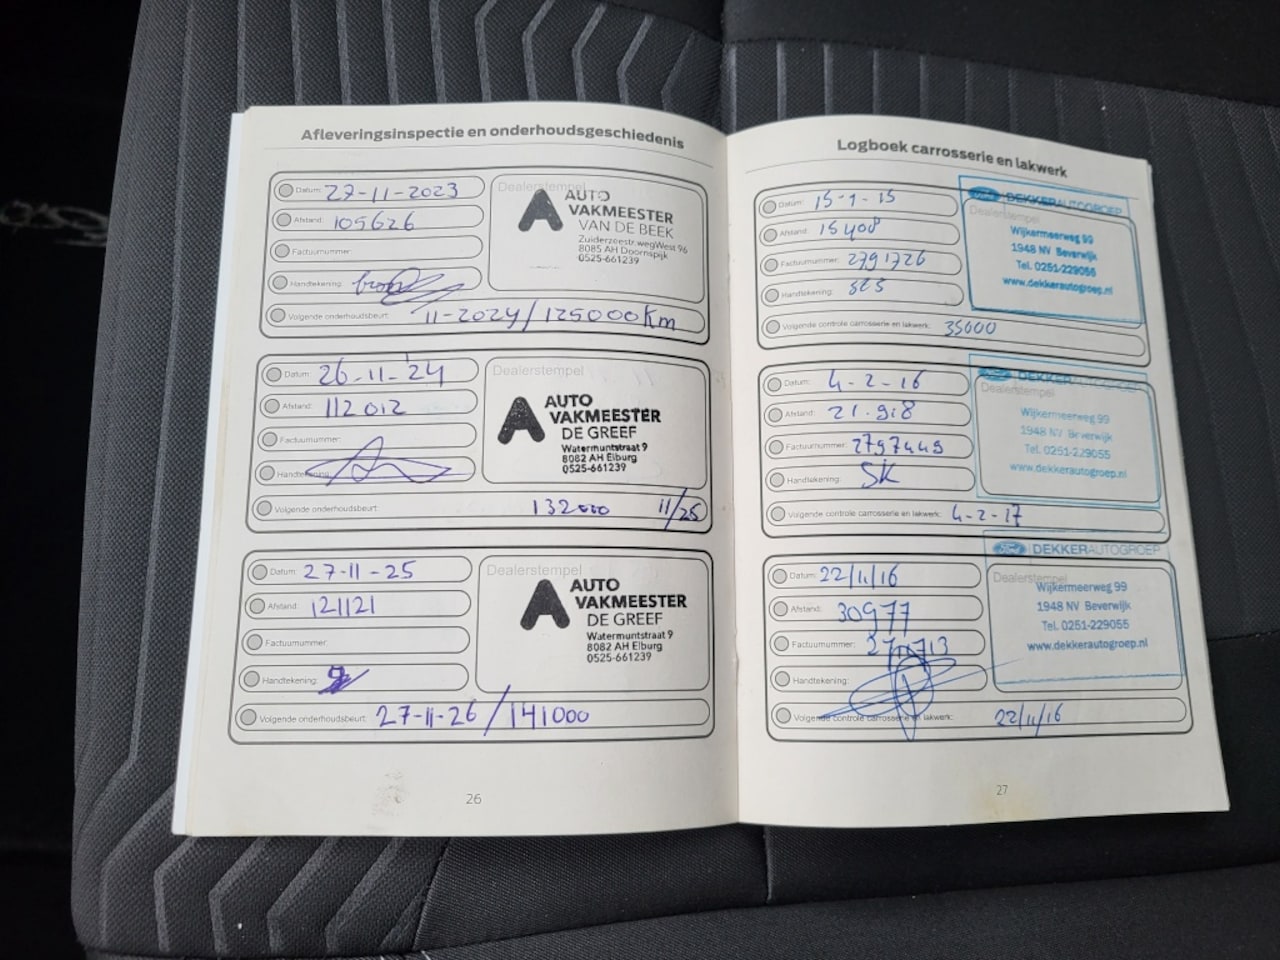 Afleveringsinspectie en onderhoudsgeschiedenis
Datum: 27-11-2023
Afstand: 105626
Factuurnummer:
Handtekening:
Volgende onderhoudsbeurt: 11-2024/125000 Km
Dealerstempel
AUTO
VAKMEESTER
VAN DE BEEK
Zuiderzeestr.wegWest 96
8085 AH Doornspijk
0525-661239
Datum: 26-11-24
Afstand: 112012
Factuurnummer:
Handtekening:
Volgende onderhoudsbeurt: 132000 11/25
Dealerstempel
AUTO
VAKMEESTER
DE GREEF
Watermuntstraat 9
8082 AH Elburg
0525-661239
Datum: 27-11-25
Afstand: 121121
Factuurnummer:
Handtekening:
Volgende onderhoudsbeurt: 27-11-26/141000
Dealerstempel
AUTO
VAKMEESTER
DE GREEF
Watermuntstraat 9
8082 AH Elburg
0525-661239
26
Logboek carrosserie en lakwerk
Datum: 15-1-15
Afstand: 15408
Factuurnummer: 2791726
Handtekening:
Volgende controle carrosserie en lakwerk: 35000
DEKKERAUTOGROEP
Dealerstempel
Wijkermeerweg 99
1948 NV Beverwijk
Tel. 0251-229055
www.dekkerautogroep.nl
Datum: 4-2-16
Afstand: 21.918
Factuurnummer: 2797449
Handtekening: SK
Volgende controle carrosserie en lakwerk: 4-2-17
DEKKERAUTOGROEP
Dealerstempel
Wijkermeerweg 99
1948 NV Beverwijk
Tel. 0251-229055
www.dekkerautogroep.nl
Datum: 22/11/16
Afstand: 30977
Factuurnummer:
Handtekening:
Volgende controle carrosserie en lakwerk: 22/11/16
DEKKERAUTOGROEP
Dealerstempel
Wijkermeerweg 99
1948 NV Beverwijk
Tel. 0251-229055
www.dekkerautogroep.nl
27